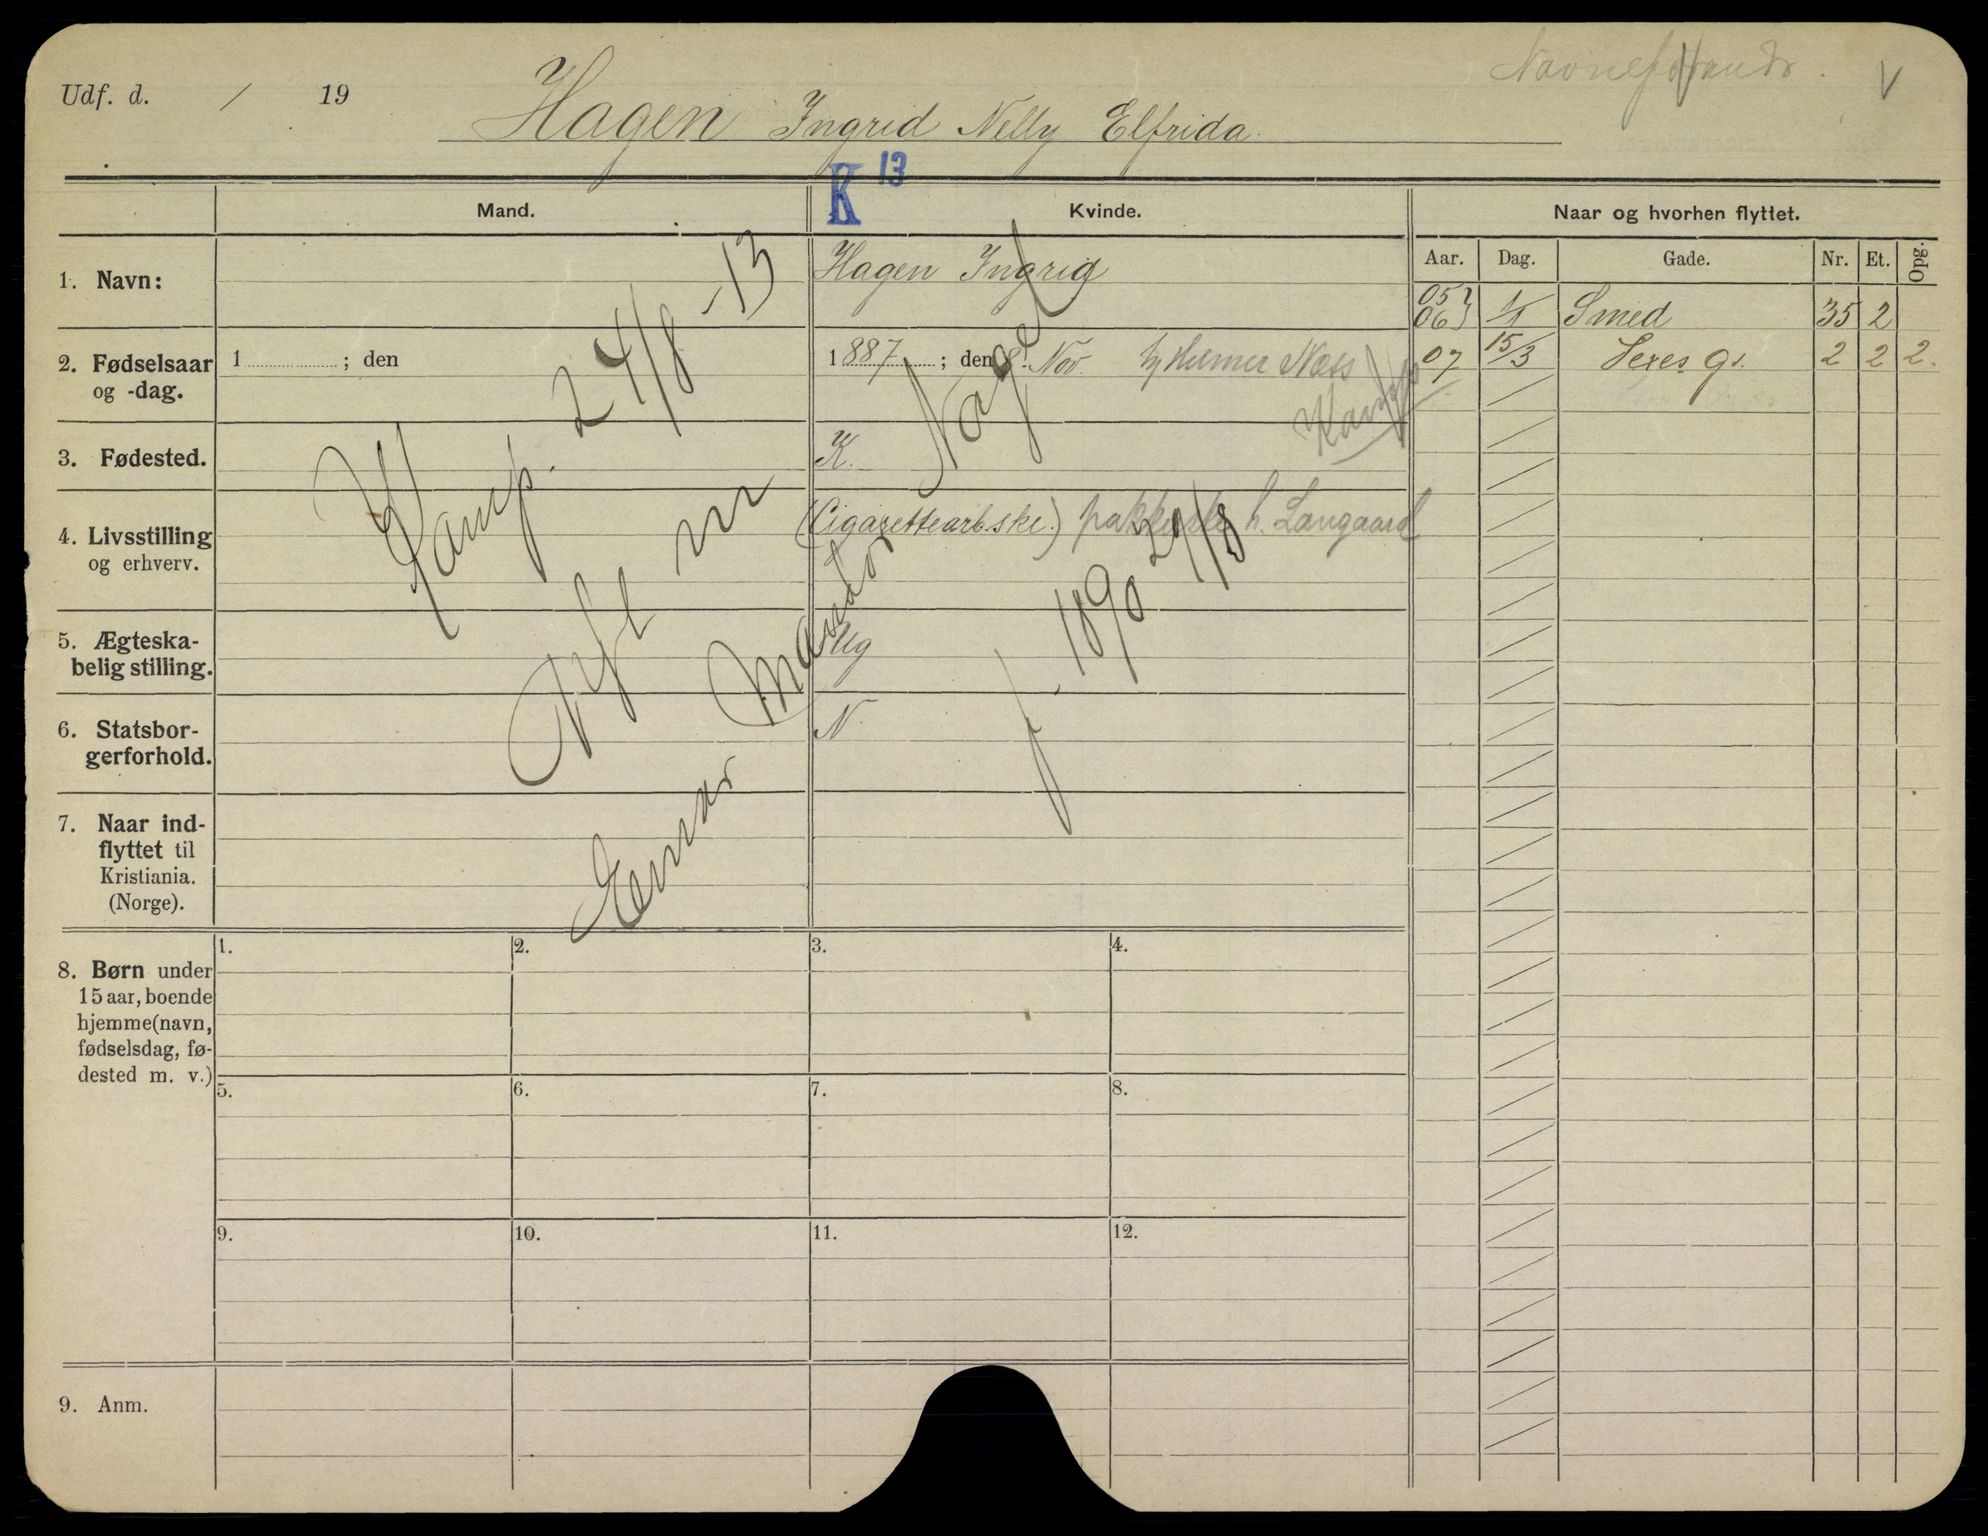 Udf. d. / 19
Hagen Ingrid Nelly Elfrida
K 13
Mand. Kvinde. Naar og hvorhen flyttet.
Aar. Dag. Gade. Nr. Et. Opg.
1. Navn: Hagen Ingrid
05 }
06 } 1/1 Smed 35 2
07 15/3 Seres g. 2 2 2.
2. Fødselsaar
og -dag.
1 ; den
1887 ; den 8. Nov.
3. Fødested. K.
4. Livsstilling
og erhverv.
(Cigarettearb.ske.) h. Langaard
5. Ægteska-
belig stilling.
Ug
6. Statsbor-
gerforhold.
N.
7. Naar ind-
flyttet til
Kristiania.
(Norge).
Kamp. 24/8 - 13
m
Einar Nagel
f. 1890 29/8
8. Børn under
15 aar, boende
hjemme (navn,
fødselsdag, fø-
dested m. v.)
1. 2. 3. 4.
5. 6. 7. 8.
9. 10. 11. 12.
9. Anm.